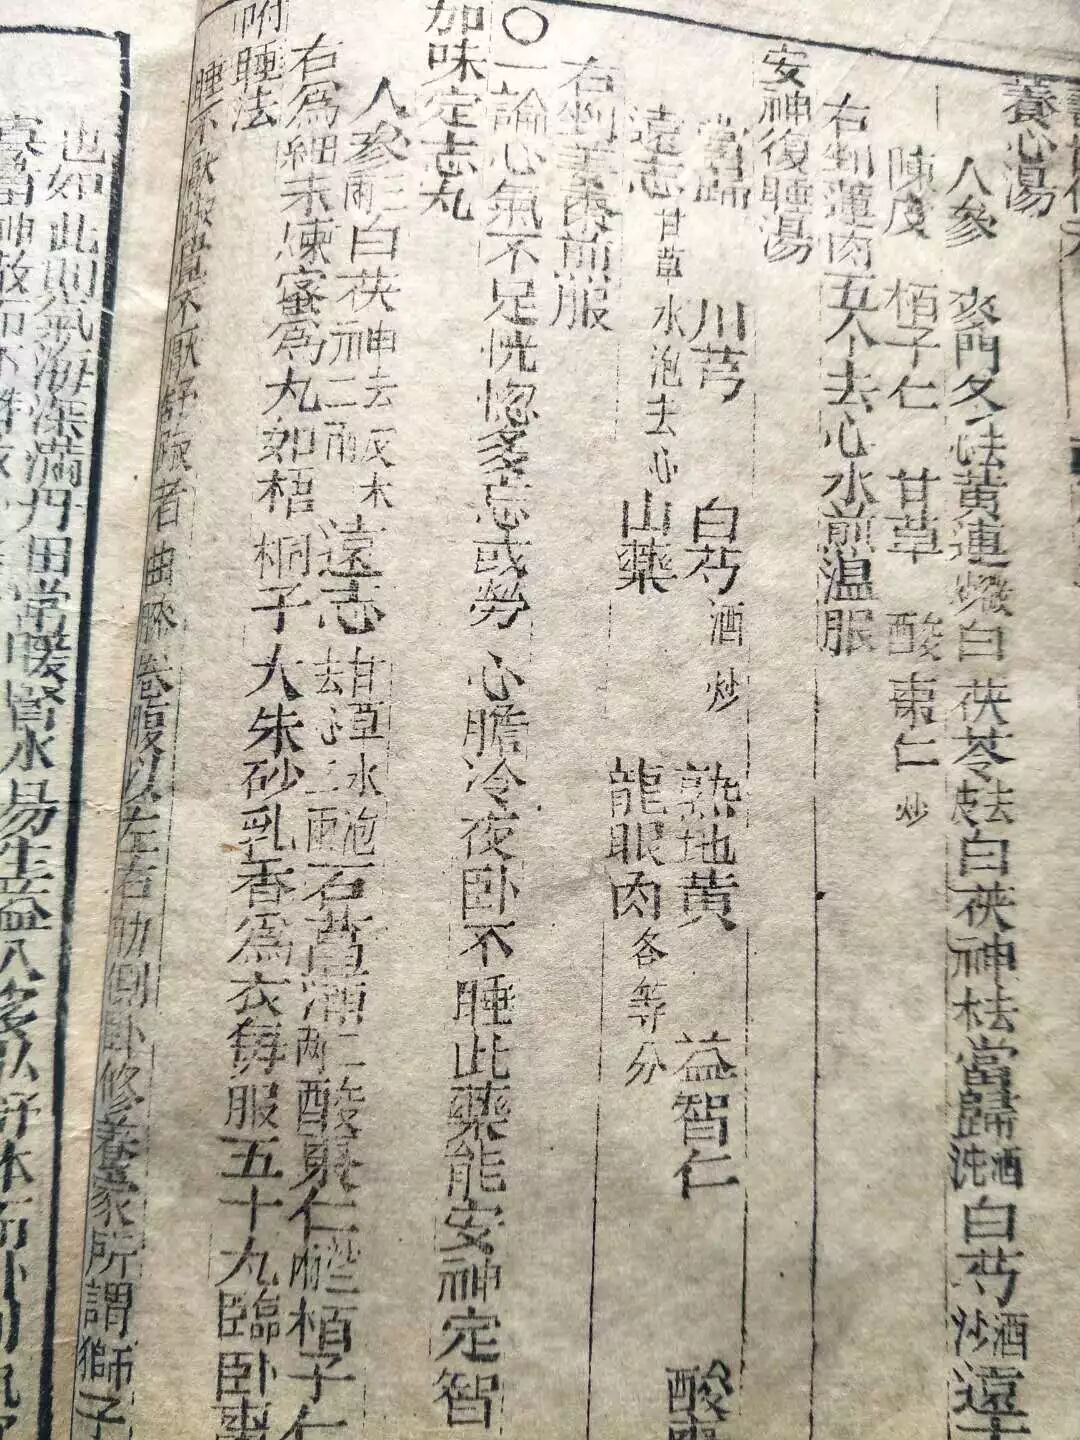 養心湯
人參 麥門冬去心 黃連炒 白茯苓去皮 白茯神去木 當歸酒洗 白芍酒炒 遠
陳皮 栢子仁 甘草 酸棗仁炒
右剉蓮肉五个去心水煎温服
安神復睡湯
當歸 川芎 白芍酒炒 熟地黃 益智仁 酸棗
遠志甘草水泡去心 山藥 龍眼肉各等分
右剉姜棗煎服
〇一論心氣不足恍惚多忘或勞心膽冷夜卧不睡此藥能安神定智
加味定志丸
人參三兩 白茯神去皮木二兩 遠志甘草水泡去心二兩 石菖蒲二兩 酸棗仁炒二兩 栢子仁
右爲細末煉蜜爲丸如梧桐子大朱砂乳香爲衣每服五十丸臨卧棗
附睡法
睡不厭踧覺不厭舒踧者曲膝卷腹以左右肋側卧修養家所謂獅子
也如此則氣海深滿丹田常暖腎水易生益人多弘舒体而卧則氣